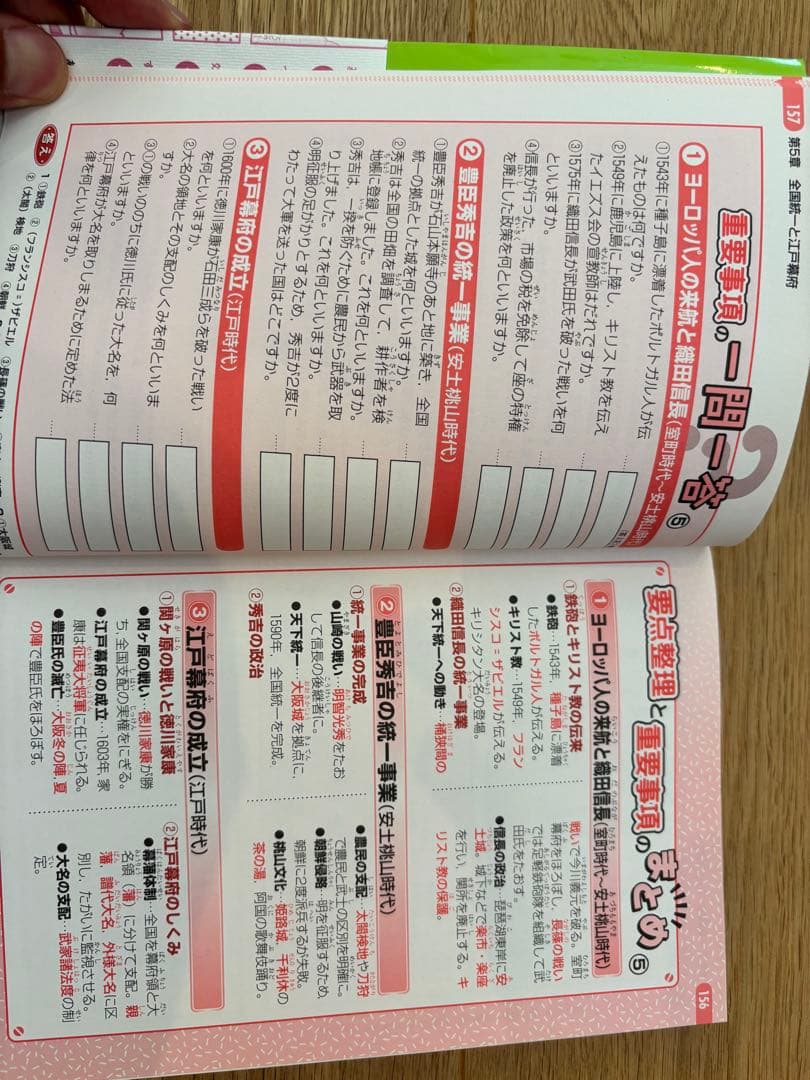 要点整理と重要事項のまとめ⑤
1 ヨーロッパ人の来航と織田信長(室町時代~安土桃山時代)
①鉄砲とキリスト教の伝来
●鉄砲…1543年,種子島に漂着
したポルトガル人が伝える。
●キリスト教…1549年,フラン
シスコ=ザビエルが伝える。
キリシタン大名の登場。
②織田信長の統一事業
●天下統一への動き…桶狭間の
戦いで今川義元を破る。室町
幕府をほろぼし,長篠の戦い
では足軽鉄砲隊を組織して武
田氏をたおす。
●信長の政治…琵琶湖東岸に安
土城。城下などで楽市・楽座
を行い,関所を廃止する。キ
リスト教の保護。
2 豊臣秀吉の統一事業(安土桃山時代)
①統一事業の完成
●山崎の戦い…明智光秀をたお
して信長の後継者に。
●天下統一…大阪城を拠点に,
1590年,全国統一を完成。
②秀吉の政治
●農民の支配…太閤検地や刀狩
で農民と武士の区別を明確に。
●朝鮮侵略…明を征服するため,
朝鮮に2度派兵するが失敗。
●桃山文化…姫路城,千利休の
茶の湯,阿国の歌舞伎踊り。
3 江戸幕府の成立(江戸時代)
①関ヶ原の戦いと徳川家康
●関ヶ原の戦い…徳川家康が勝
ち,全国支配の実権をにぎる。
●江戸幕府の成立…1603年,家
康は征夷大将軍に任じられる。
●豊臣氏の滅亡…大阪冬の陣,夏
の陣で豊臣氏をほろぼす。
②江戸幕府のしくみ
●幕藩体制…全国を幕府領と大
名領(藩)に分けて支配。親
藩,譜代大名,外様大名に区
別し,たがいに監視させる。
●大名の支配…武家諸法度の制
定。
156
157 第5章 全国統一と江戸幕府
重要事項の一問一答⑤
1 ヨーロッパ人の来航と織田信長(室町時代~安土桃山時代)
①1543年に種子島に漂着したポルトガル人が伝
えたものは何ですか。
②1549年に鹿児島に上陸し,キリスト教を伝え
たイエズス会の宣教師はだれですか。
③1575年に織田信長が武田氏を破った戦いを何
といいますか。
④信長が行った,市場の税を免除して座の特権
を廃止した政策を何といいますか。
2 豊臣秀吉の統一事業(安土桃山時代)
①豊臣秀吉が石山本願寺のあと地に築き,全国
統一の拠点とした城を何といいますか。
②秀吉は全国の田畑を調査して,耕作者を検
地帳に登録しました。これを何といいますか。
③秀吉は,一揆を防ぐために農民から武器を取
り上げました。これを何といいますか。
④明征服の足がかりとするため,秀吉が2度に
わたって大軍を送った国はどこですか。
3 江戸幕府の成立(江戸時代)
①1600年に徳川家康が石田三成らを破った戦い
を何といいますか。
②大名の領地とその支配のしくみを何といいま
すか。
③①の戦いののちに徳川氏に従った大名を,何
といいますか。
④江戸幕府が大名を取りしまるために定めた法
律を何といいますか。
答え
1 ①鉄砲 ②(フランシスコ=)ザビエル
②(太閤)検地 ③刀狩